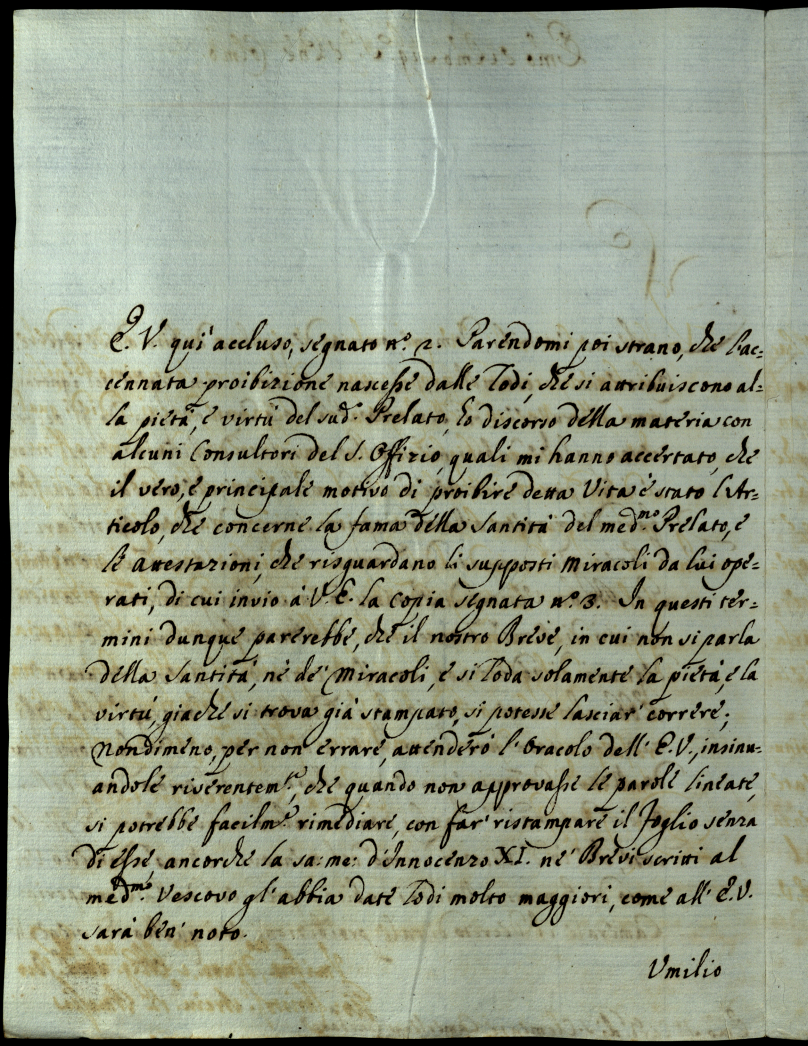 E. V. quì accluso, segnato n.º 2. Parendomi poi strano, che l'ac=
cennata proibizione nascesse dalle lodi, che si attribuiscono al=
la pietà, e virtù del sud.º Prelato, ho discorso della materia con
alcuni Consultori del S. Offizio, quali mi hanno accertato, che
il vero, e principale motivo di proibire detta Vita è stato l'Ar=
ticolo, che concerne la fama della Santità del med.mo Prelato, e
le attestazioni, che risguardano li supposti miracoli da lui ope=
rati, di cui invio à V. E. la copia segnata n.º 3. In questi ter=
mini dunque parerebbe, che il nostro Breve, in cui non si parla
della Santità, nè de' Miracoli, e si loda solamente la pietà, e la
virtù, giache si trova già stampato, si potesse lasciar' correre;
Nondimeno, per non errare, attenderò l'Oracolo dell' E.V., insinu=
andole riverentem.te, che quando non approvasse le parole lineate,
si potrebbe facilm.te rimediare, con far' ristampare il foglio senza
di esse, ancorche la sa: me: d'Innocenzo XI. ne' Brevi scritti al
med.mo Vescovo gl'abbia date lodi molto maggiori, come all' E.V.
sarà ben' noto.
Vmilio